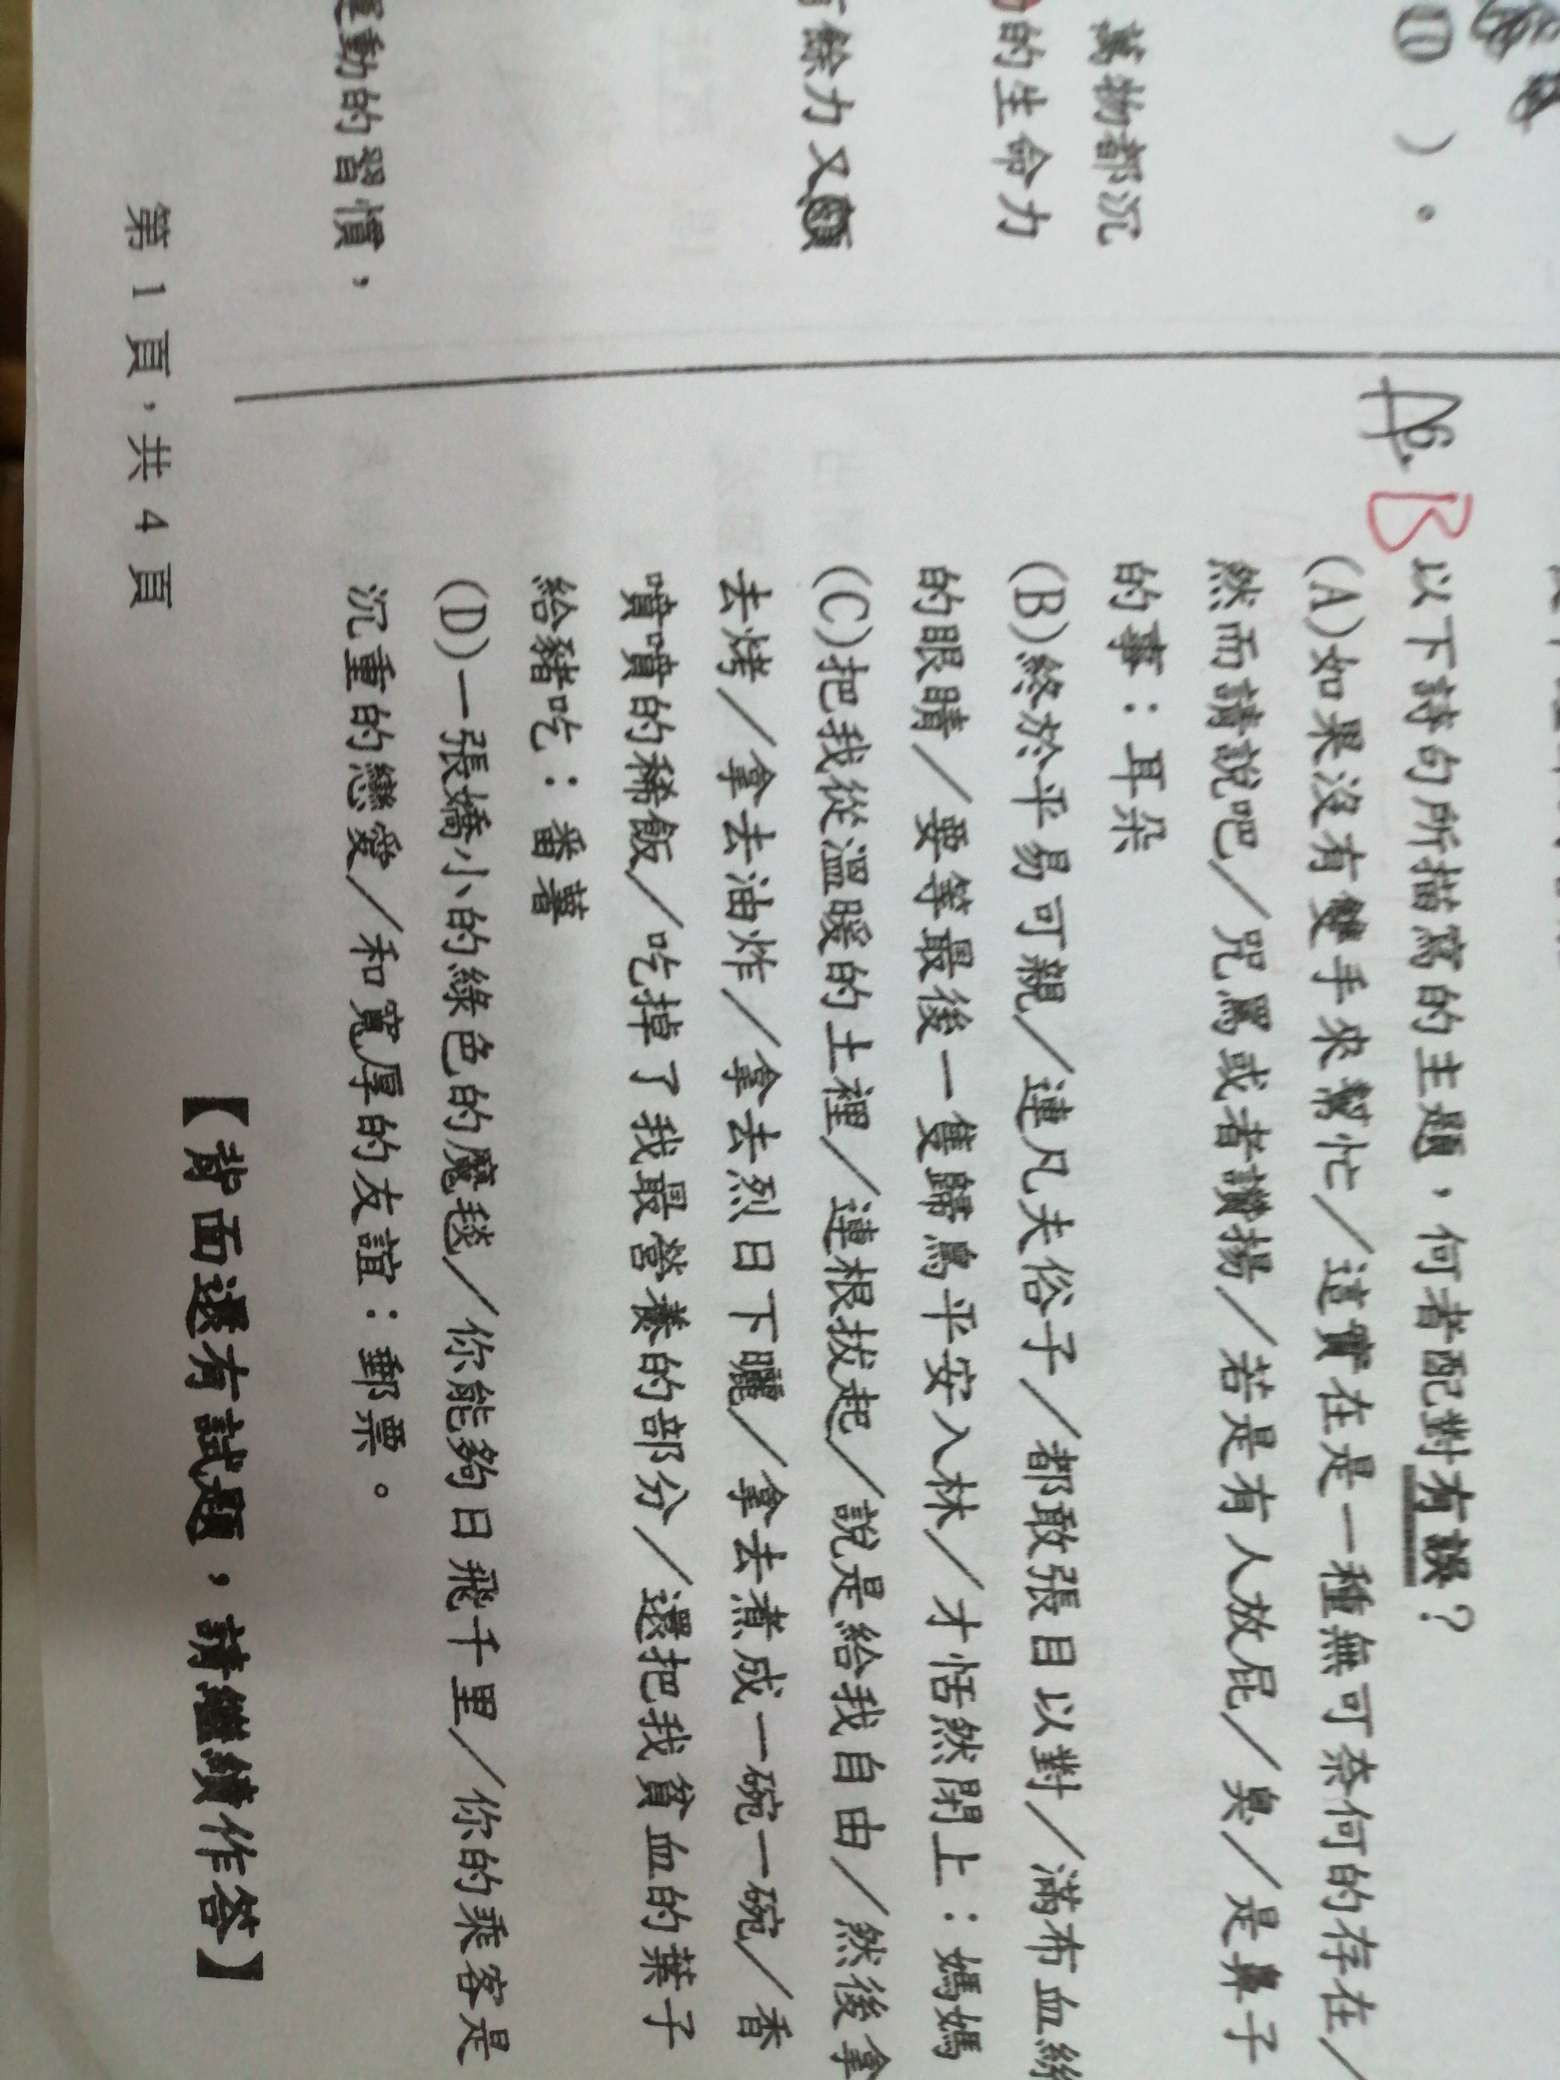 (D)。
萬物都沉
的生命力
餘力又願
運動的習慣，
第1頁，共4頁
6. B 以下詩句所描寫的主題，何者配對有誤？
(A)如果沒有雙手來幫忙／這實在是一種無可奈何的存在／
然而請說吧／咒罵或者讚揚／若是有人放屁／臭／是鼻子
的事：耳朵
(B)終於平易可親／連凡夫俗子／都敢張目以對／滿布血絲
的眼睛／要等最後一隻歸鳥平安入林／才恬然閉上：媽媽
(C)把我從溫暖的土裡／連根拔起／說是給我自由／然後拿
去烤／拿去油炸／拿去烈日下曬／拿去煮成一碗一碗／香
噴噴的稀飯／吃掉了我最營養的部分／還把我貧血的葉子
給豬吃：番薯
(D)一張嬌小的綠色的魔毯／你能夠日飛千里／你的乘客是
沉重的戀愛／和寬厚的友誼：郵票。
【背面還有試題，請繼續作答】